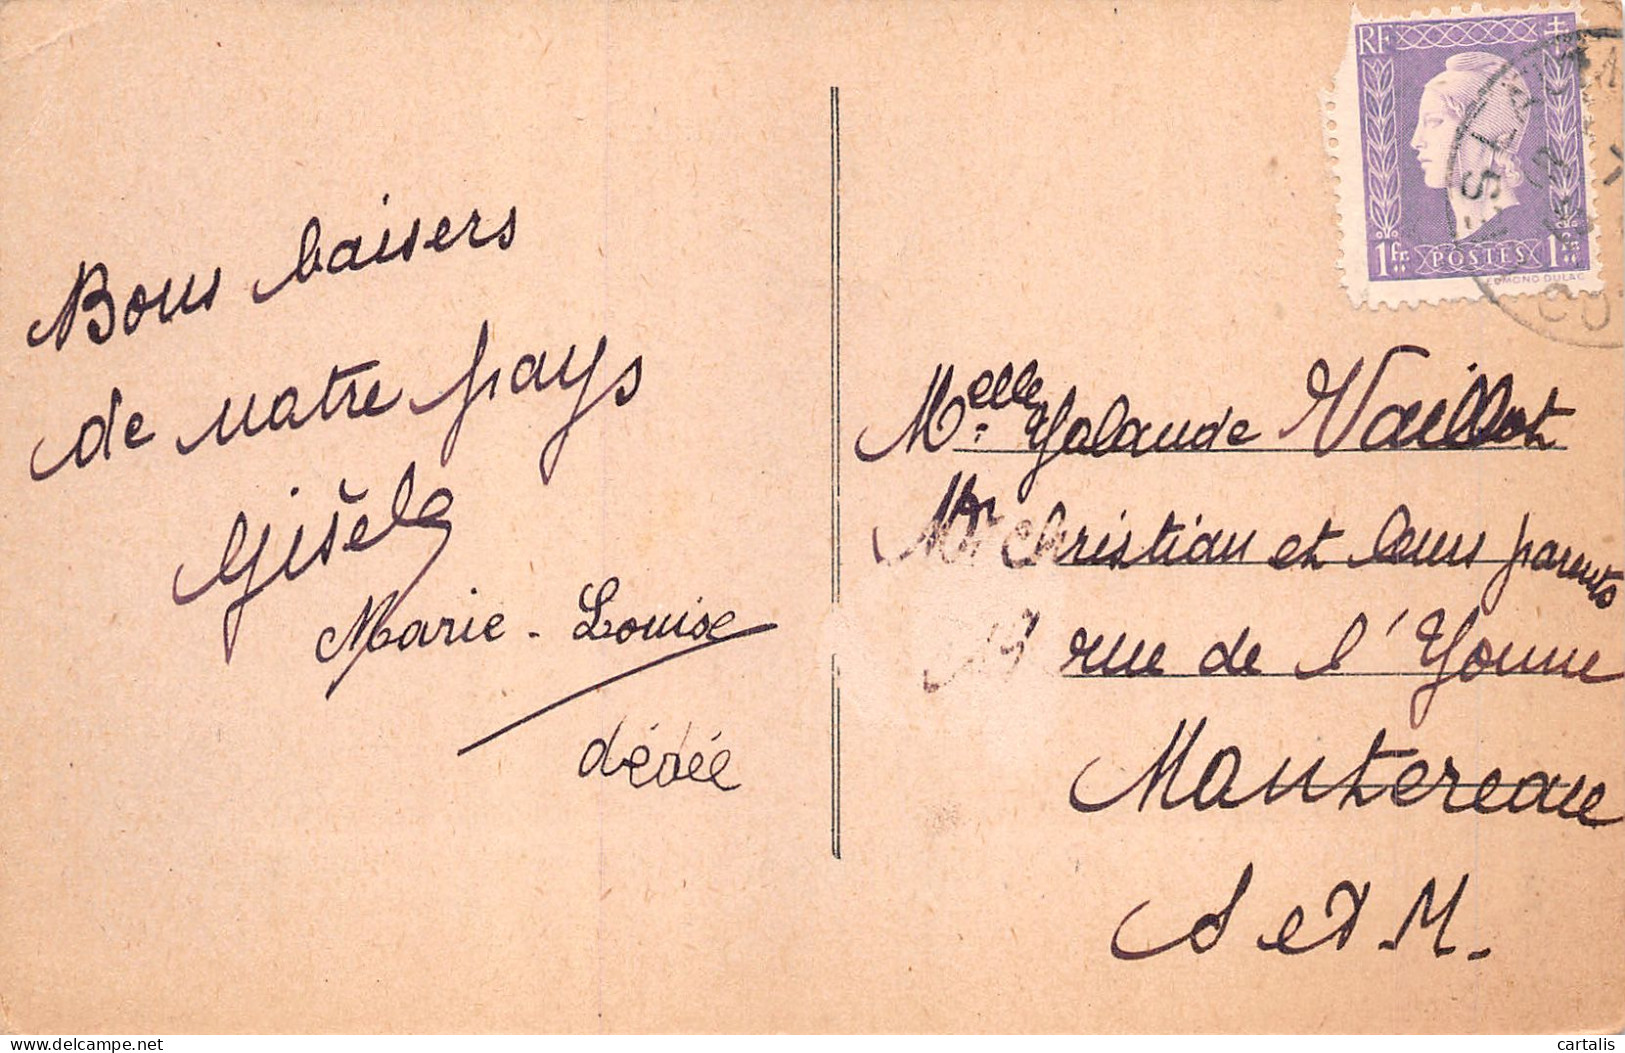 Bons baisers
de notre pays
Gisèle
Marie-Louise
dédée
RF
1fr. POSTES 1fr.
EDMOND DULAC
Melle. Yolande Vaillot
Mr Christian et leurs parents
19 rue de l'Yonne
Montereau
S et M.
cartalis